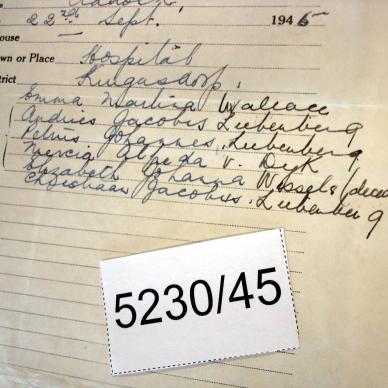 22nd Sept. 1945
ouse
own or Place Hospital
istrict Krugersdorp.
Emma Martha Wallace
Andries Jacobus Liebenberg
Petrus Johannes Liebenberg
Mercia Alveda v. Dyk
Elizabeth Johanna Wessels (decea
Christiaan Jacobus Liebenberg
5230/45